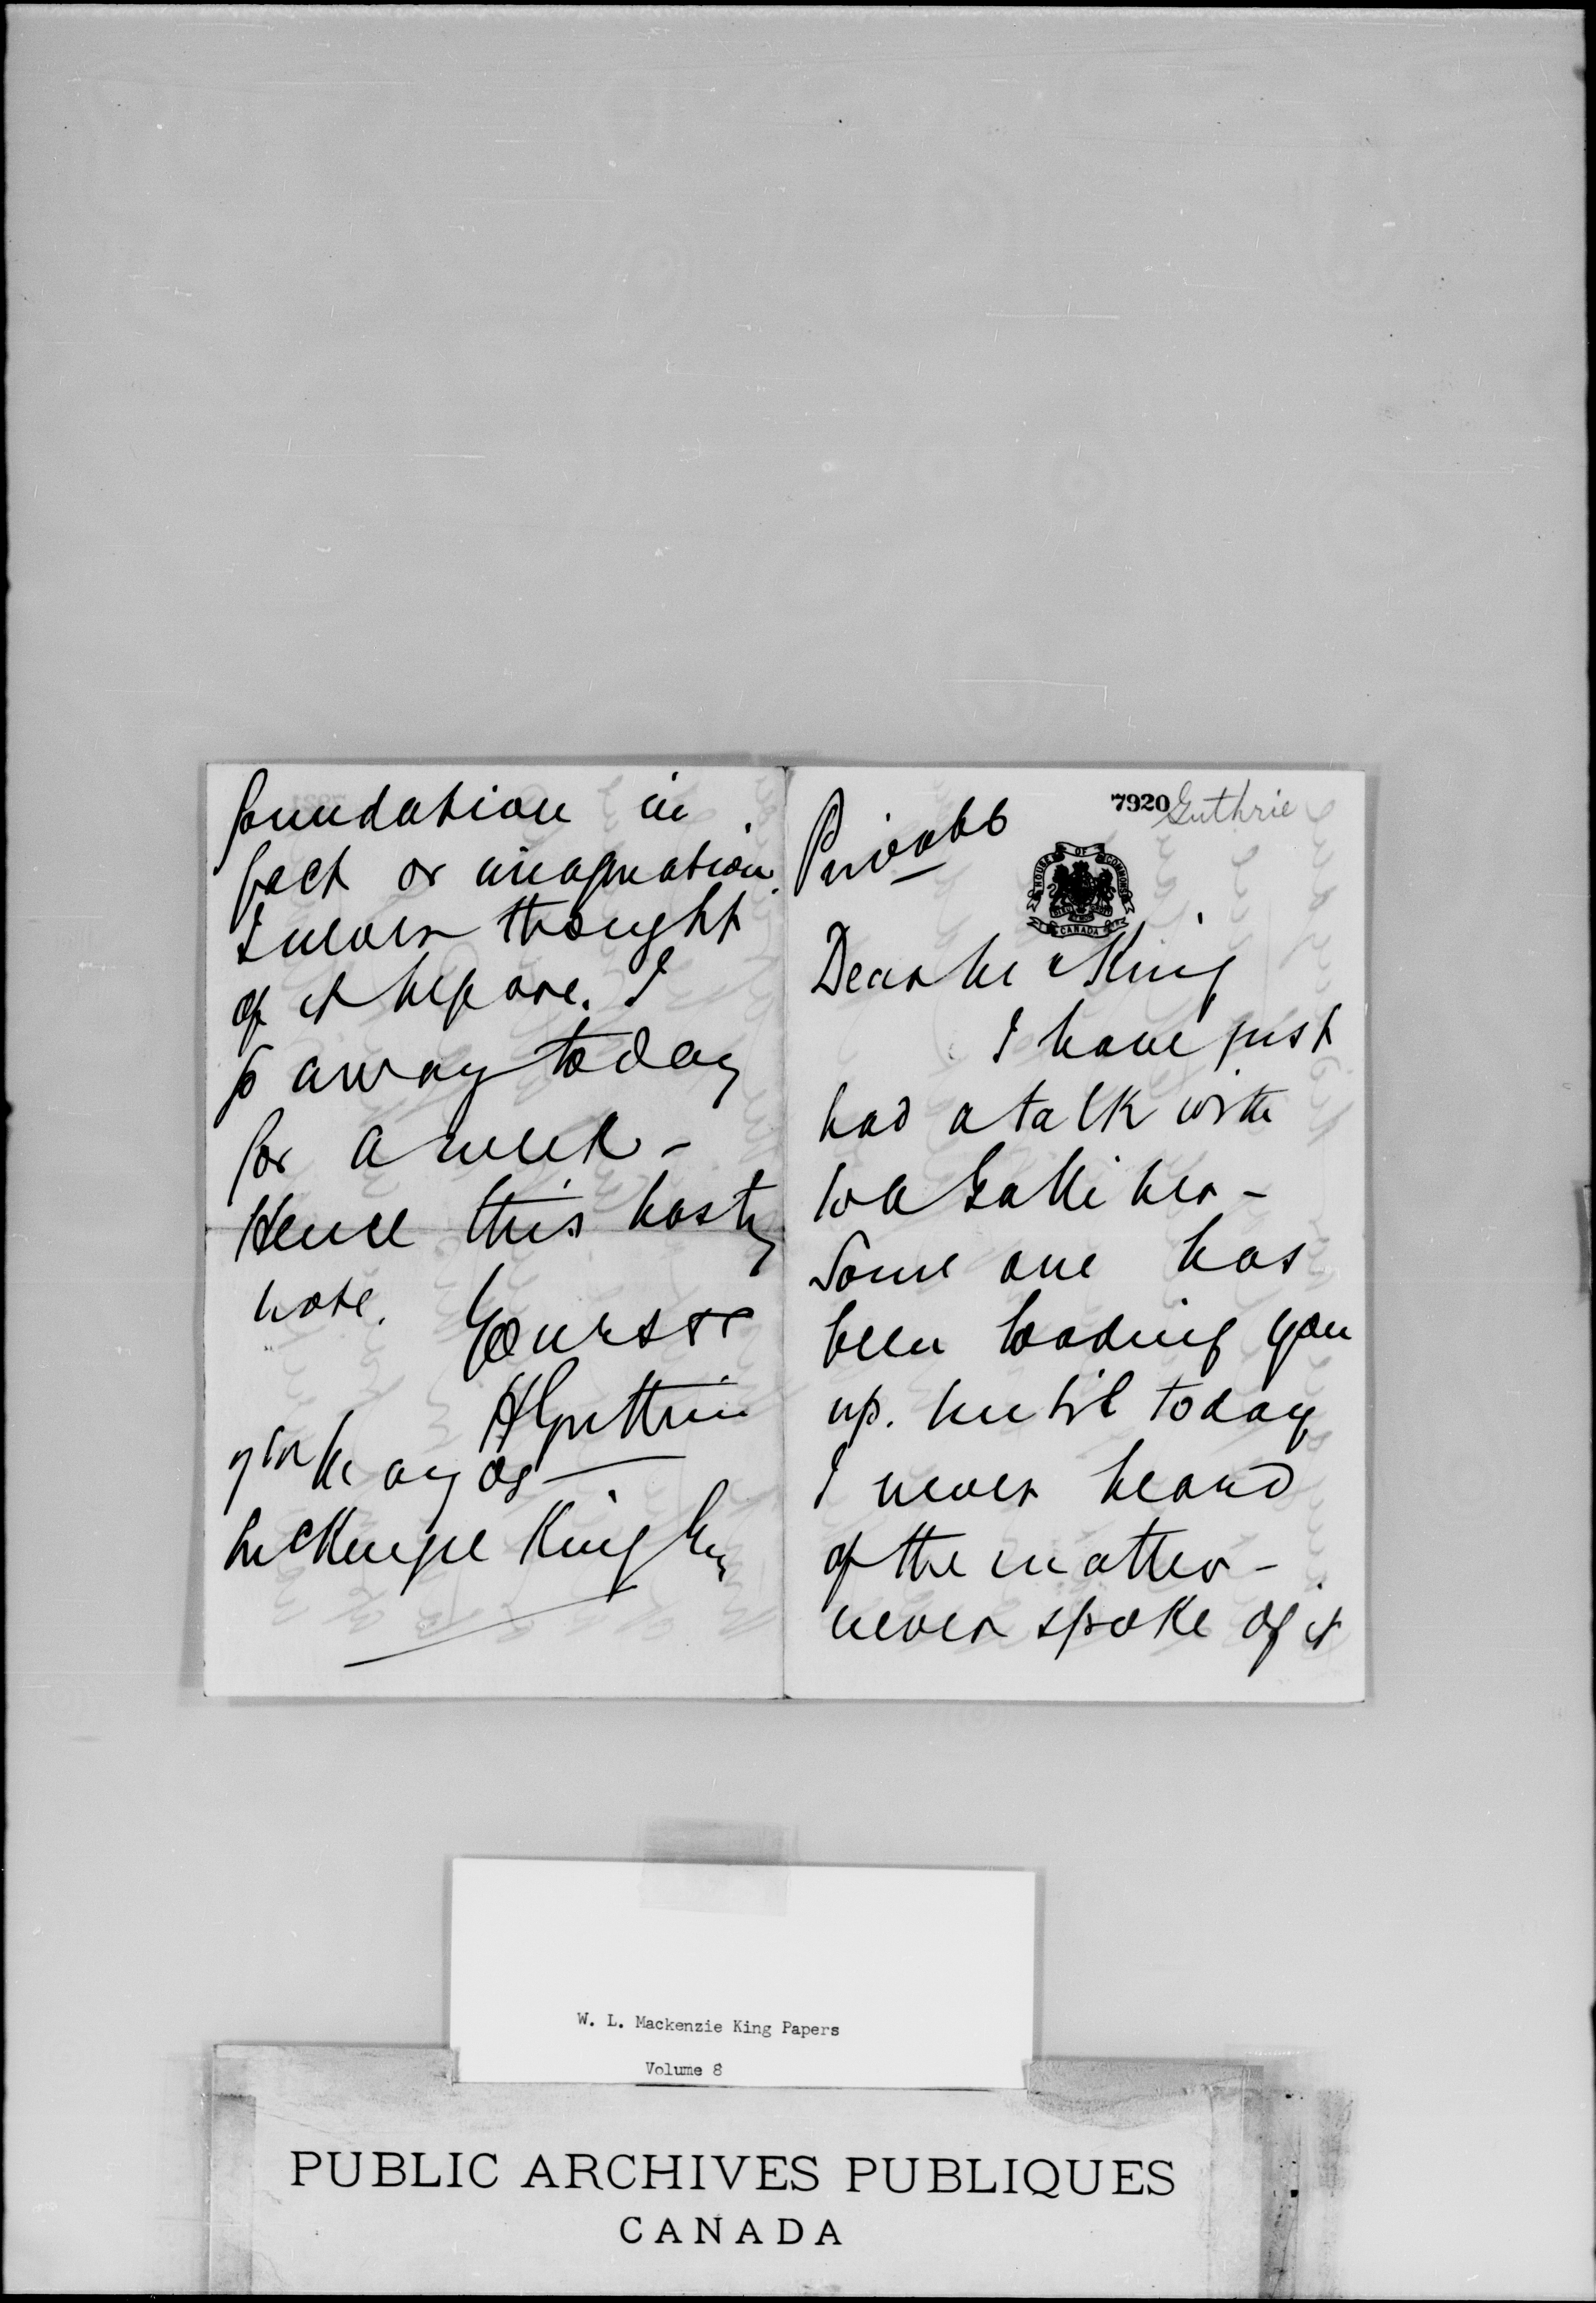 7920 Guthrie
Private
HOUSE OF COMMONS
CANADA
Dear Mr King
I have just
had a talk with
W A Galliher -
Some one has
been loading you
up. Until today
I never heard
of the matter -
never spoke of it
foundation in
fact or imagination.
I never thought
of it before. I
go away today
for a week -
Hence this hasty
note.
Yours
H Guthrie
7th May 08
McKenzie King Esq
W. L. Mackenzie King Papers
Volume 8
PUBLIC ARCHIVES PUBLIQUES
CANADA